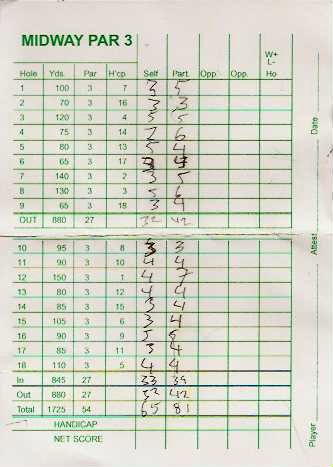 MIDWAY PAR 3
W+
L-
Hole Yds. Par H'cp. Self Part. Opp. Opp. Ho
1 100 3 7 3 5
2 70 3 16 3 3
3 120 3 4 5
4 75 3 14 2 6
5 80 3 13 5 4
6 65 3 17 4
7 140 3 2 3 5
8 130 3 3 5 6
9 65 3 18 3 4
OUT 880 27 32 42
10 95 3 8 3 3
11 90 3 10 4 4
12 150 3 1 4 7
13 80 3 12 4 4
14 85 3 15 3 4
15 105 3 6 3 4
16 90 3 9 5 5
17 85 3 11 3 4
18 110 3 5 4 4
In 845 27 33 39
Out 880 27 32 42
Total 1725 54 65 81
HANDICAP
NET SCORE
Date
Attest
Player